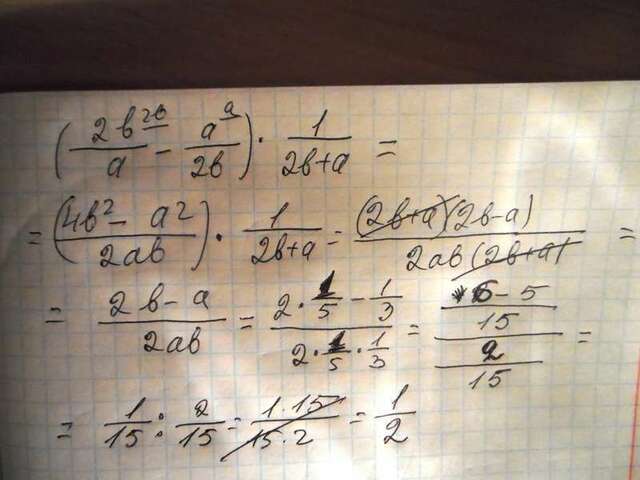 (2b^2b/a - a^a/2b) · 1/(2b+a) =
= (4b² - a²)/(2ab) · 1/(2b+a) = (2b+a)(2b-a)/(2ab(2b+a)) =
= (2b-a)/(2ab) = (2·1/5 - 1/3)/(2·1/5·1/3) = ((6-5)/15)/(2/15) =
= 1/15 : 2/15 = (1·15)/(15·2) = 1/2